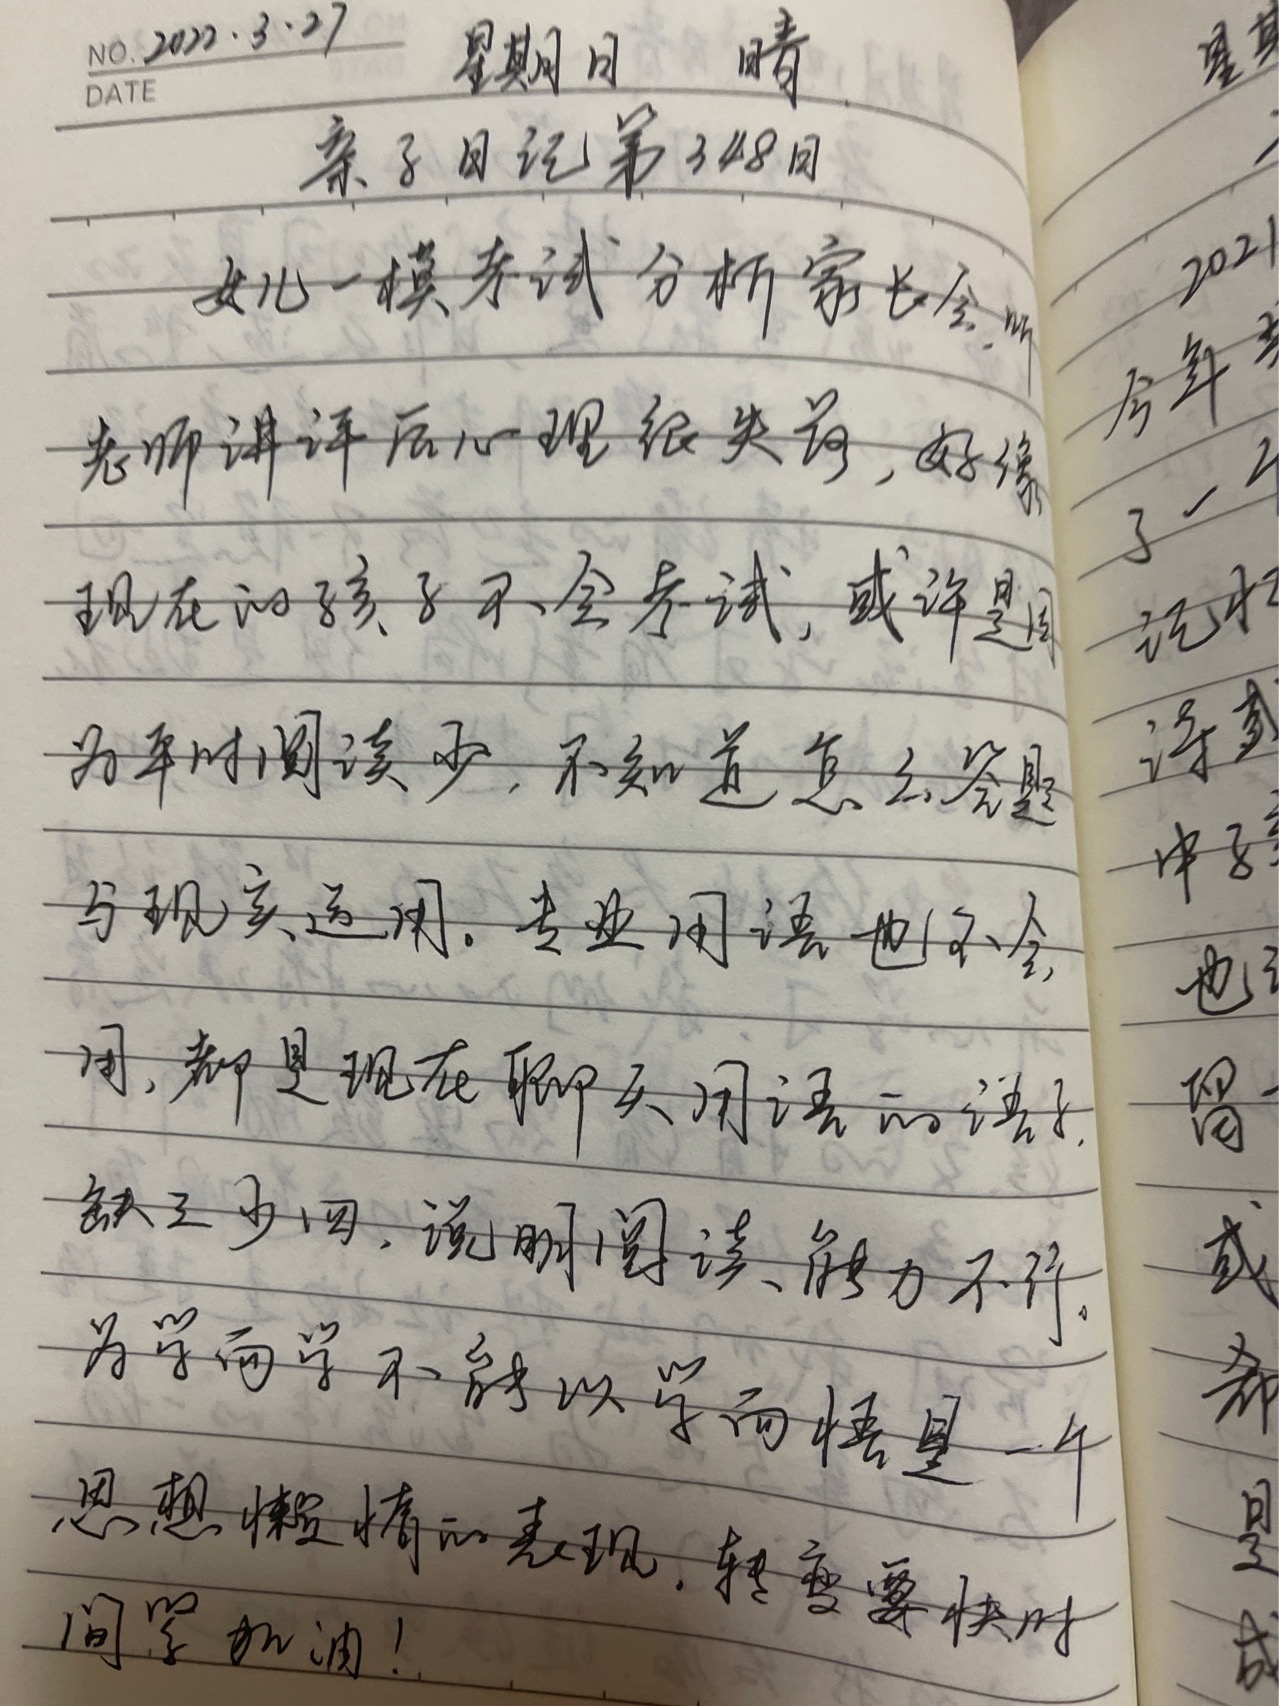 NO. 2022.3.27 星期日 晴
DATE
亲子日记第348日
女儿一模考试分析家长会,听
老师讲评后心理很失落,好像
现在的孩子不会考试,或许是因
为平时阅读少,不知道怎么答题
与现实运用。专业用语也不会
用,都是现在聊天用语的语子,
缺三少四,说明阅读、能力不行。
为学而学不能以学而悟是一个
思想懒惰的表现,转变要快时
间学加油!
星期
2021
今年
了一
记忆
译或
中子
也
留
或
都
是
成